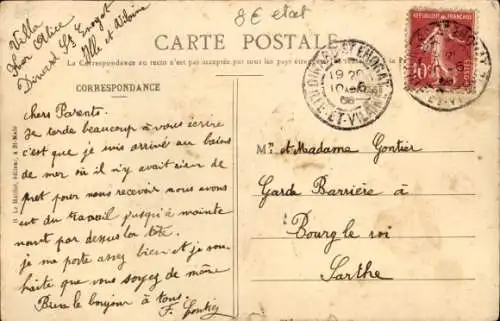 Villa
Mon Alice
Dinard St Enogat
Ille et Vilaine
8E etat
CARTE POSTALE
La Correspondance au recto n'est pas acceptée par tous les pays étrangers
CORRESPONDANCE
REPUBLIQUE FRANÇAISE
10
ST ENOGAT
19 20
ILLE-ET-VILAINE
chers Parents.
Je tarde beaucoup à vous écrire
c'est que je suis arrivée au bains
de mer où il n'y avait rien de
pret pour nous recevoir nous avons
eut du travail jusqu'à mainte
nant par dessus la tête.
je me porte assez bien et je sou
haite que vous soyez de même
Bien le bonjour à tous.
F. Gontier
Mr et Madame Gontier
Garde Barrière à
Bourg le roi
Sarthe